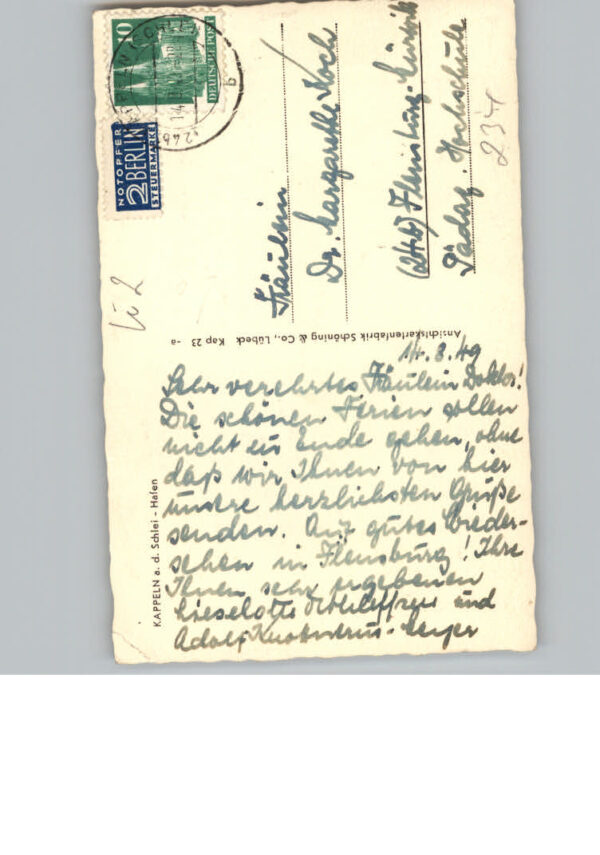 10
DEUTSCHE POST
NOTOPFER
2 BERLIN
STEUERMARKE
Fräulein
Dr. Margarethe Koch
(24b) Flensburg-Mürwik
Pädag. Hochschule
234
Ansichtskartenfabrik Schöning & Co., Lübeck Kap 23 -a
KAPPELN a. d. Schlei - Hafen
14. 8. 49
Sehr verehrtes Fräulein Doktor!
Die schönen Ferien sollen
nicht zu Ende gehen, ohne
daß wir Ihnen von hier
unsere herzlichsten Grüße
senden. Auf gutes Wieder-
sehen in Flensburg! Ihre
Ihnen sehr ergebenen
Lieselotte und
Adolf